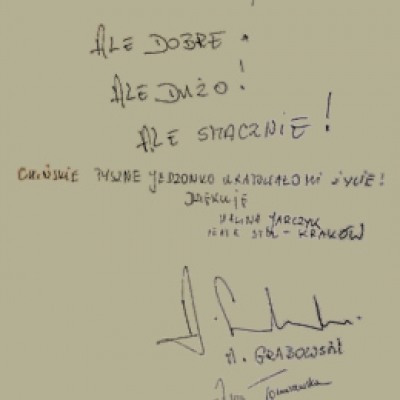 ALE DOBRE.
ALE DUŻO!
ALE SMACZNIE!
CHIŃSKIE PYSZNE JEDZONKO URATOWAŁO MI ŻYCIE!
DZIĘKUJĘ
HALINA JARCZYK
TEATR STU - KRAKÓW
A. GRABOWSKI